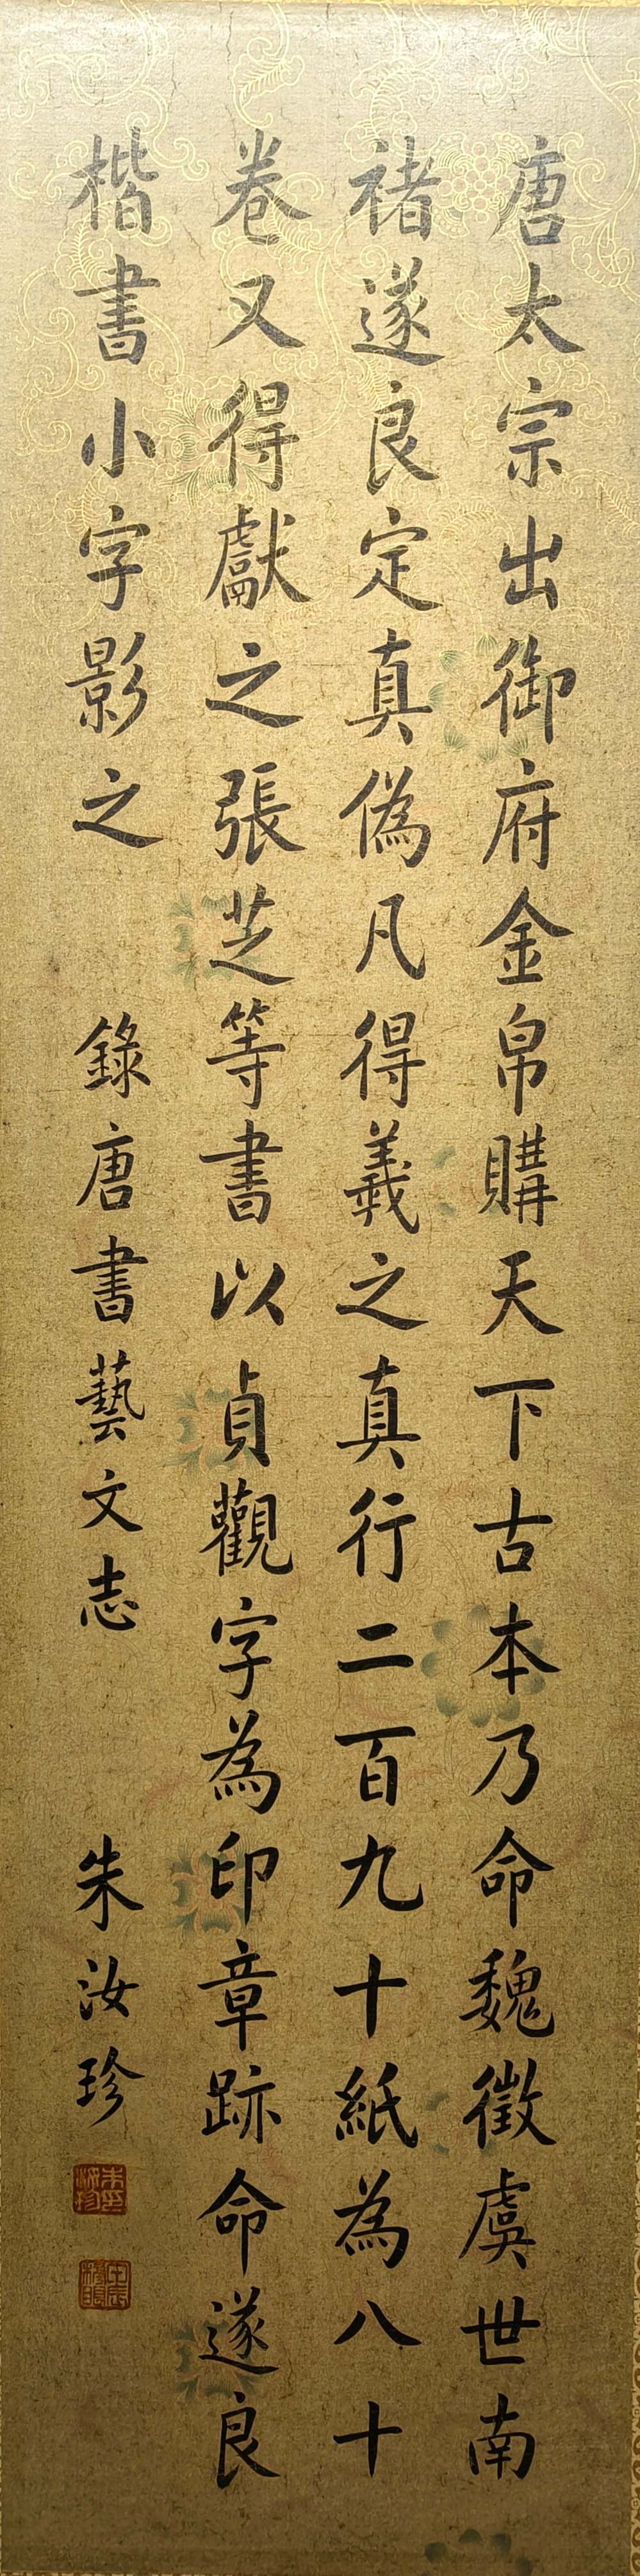 唐太宗出御府金帛購天下古本乃命魏徵虞世南
褚遂良定真偽凡得羲之真行二百九十紙為八十
卷又得獻之張芝等書以貞觀字為印章跡命遂良
楷書小字影之
錄唐書藝文志
朱汝珍
朱印汝珍
甲辰榜眼